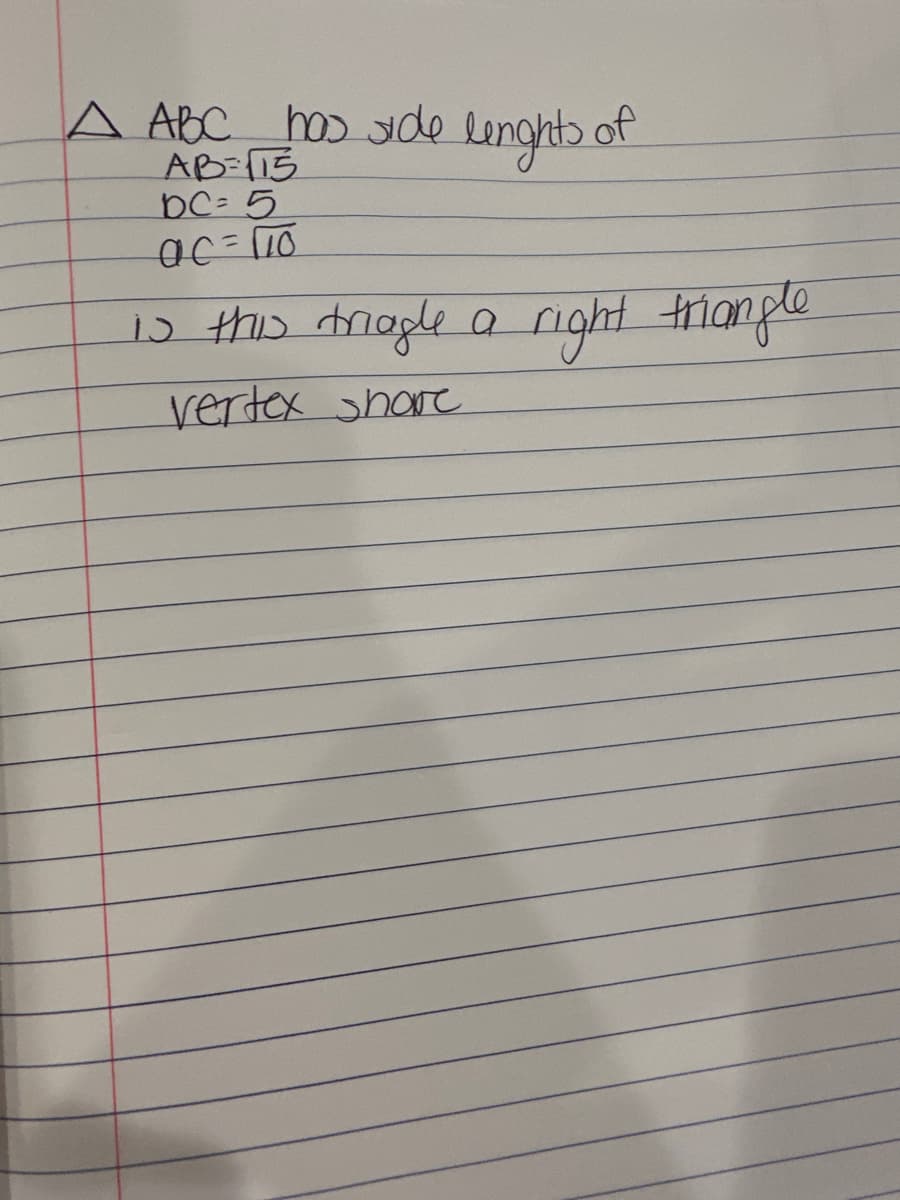 △ ABC has side lenghts of
AB=√15
bC= 5
aC=√10
is this triagle a right triangle
vertex share